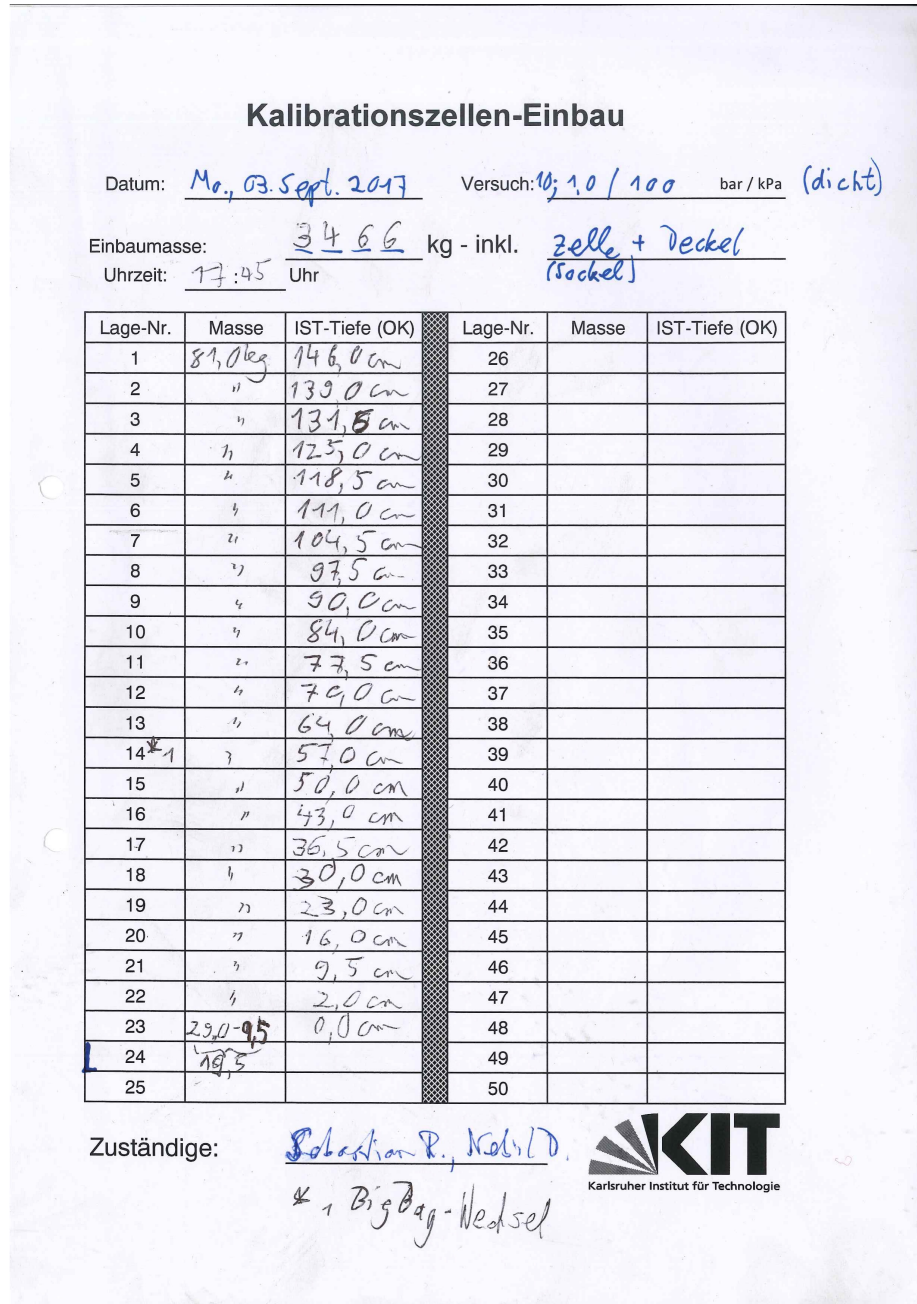 Kalibrationszellen-Einbau
Datum: Mo., 03. Sept. 2017 Versuch: 10; 1,0 / 100 bar / kPa (dicht)
Einbaumasse: 3466 kg - inkl. Zelle + Deckel
Uhrzeit: 17:45 Uhr (Sockel)
Lage-Nr. Masse IST-Tiefe (OK) Lage-Nr. Masse IST-Tiefe (OK)
1 81,0 kg 146,0 cm 26
2 " 139,0 cm 27
3 " 131,5 cm 28
4 " 125,0 cm 29
5 " 118,5 cm 30
6 " 111,0 cm 31
7 " 104,5 cm 32
8 " 97,5 cm 33
9 " 90,0 cm 34
10 " 84,0 cm 35
11 " 77,5 cm 36
12 " 70,0 cm 37
13 " 64,0 cm 38
14 *1 " 57,0 cm 39
15 " 50,0 cm 40
16 " 43,0 cm 41
17 " 36,5 cm 42
18 " 30,0 cm 43
19 " 23,0 cm 44
20 " 16,0 cm 45
21 " 9,5 cm 46
22 " 2,0 cm 47
23 29,0-9,5 0,0 cm 48
24 19,5 49
25 50
Zuständige: Sebastian R., Nebil D.
KIT
Karlsruher Institut für Technologie
* 1 BigBag-Wechsel